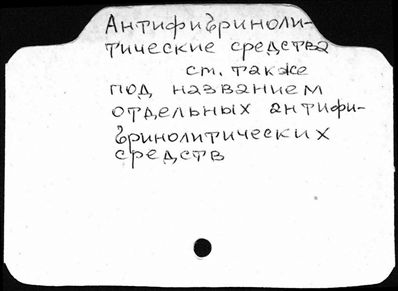 Антифибриноли-
тические средства
см. также
под названием
отдельных антифи-
бринолитических
средств